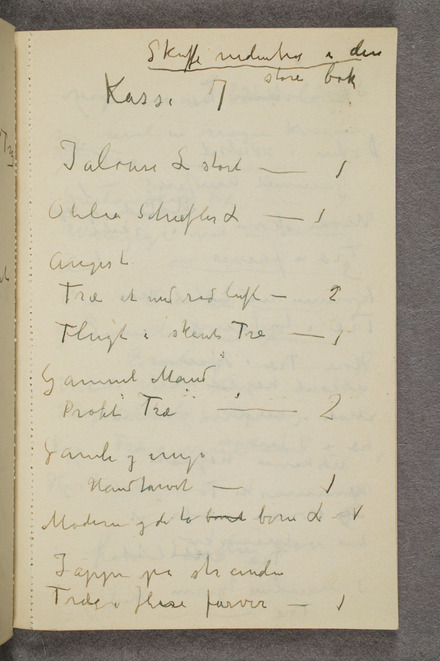 Skuffe nederst i den
store bok
Kasse 7
Jalousie L stort — 1
Ohlsen Schiefler L — 1
Angest
Træ et med rød luft — 2
Flugt i skents Træ — 1
Gammel Mand
Profil Træ " — 2
Gamle og unge
Haandfarvet — 1
Modern og de to born L 1
Jappe på stranden
Træ i flere farver — 1